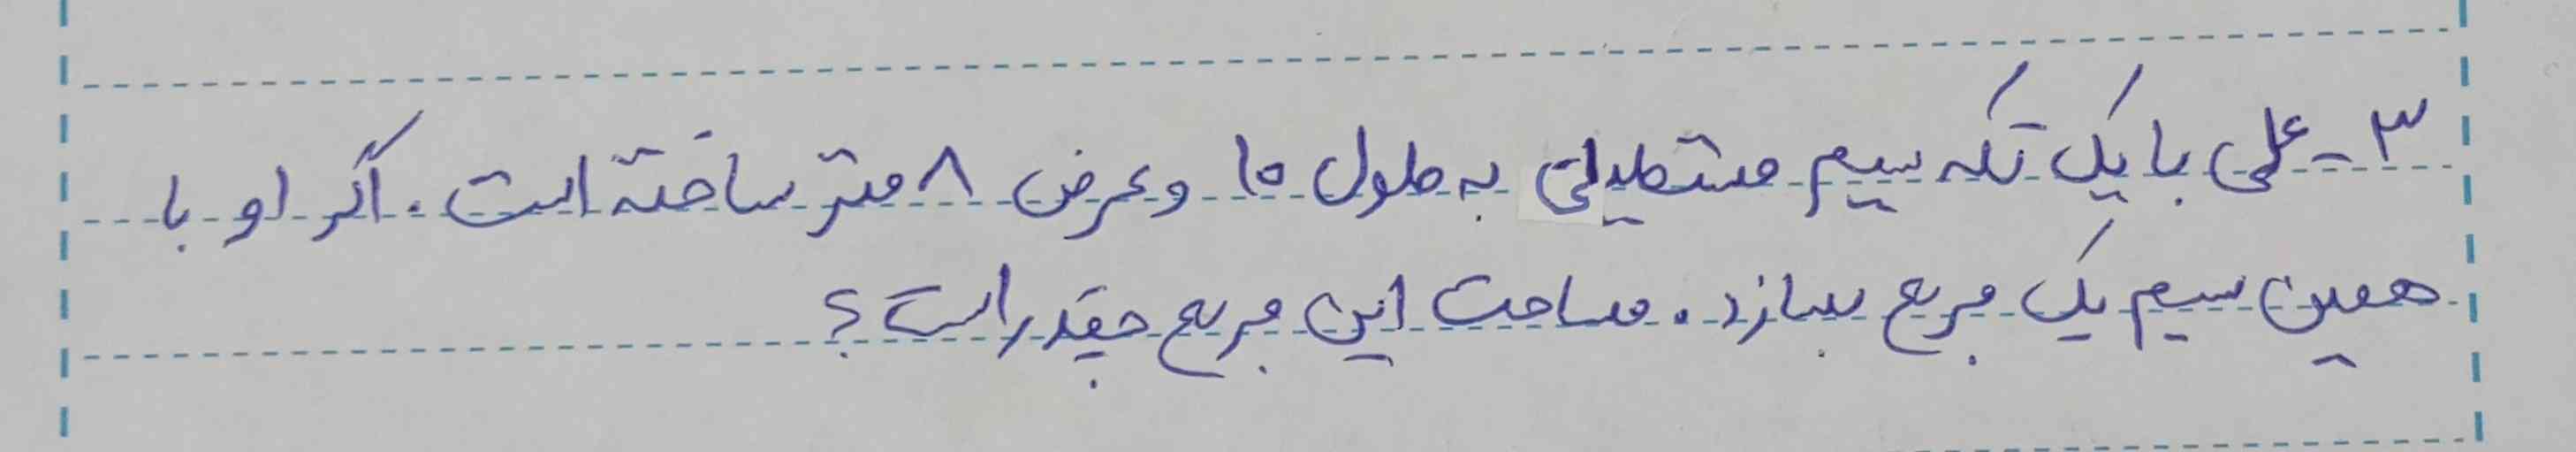 ۳ - علی با یک تکه سیم مستطیلی به طول ۱۰ و عرض ۸ متر ساخته است . اگر او با
همین سیم یک مربع بسازد . مساحت این مربع چقدر است ؟